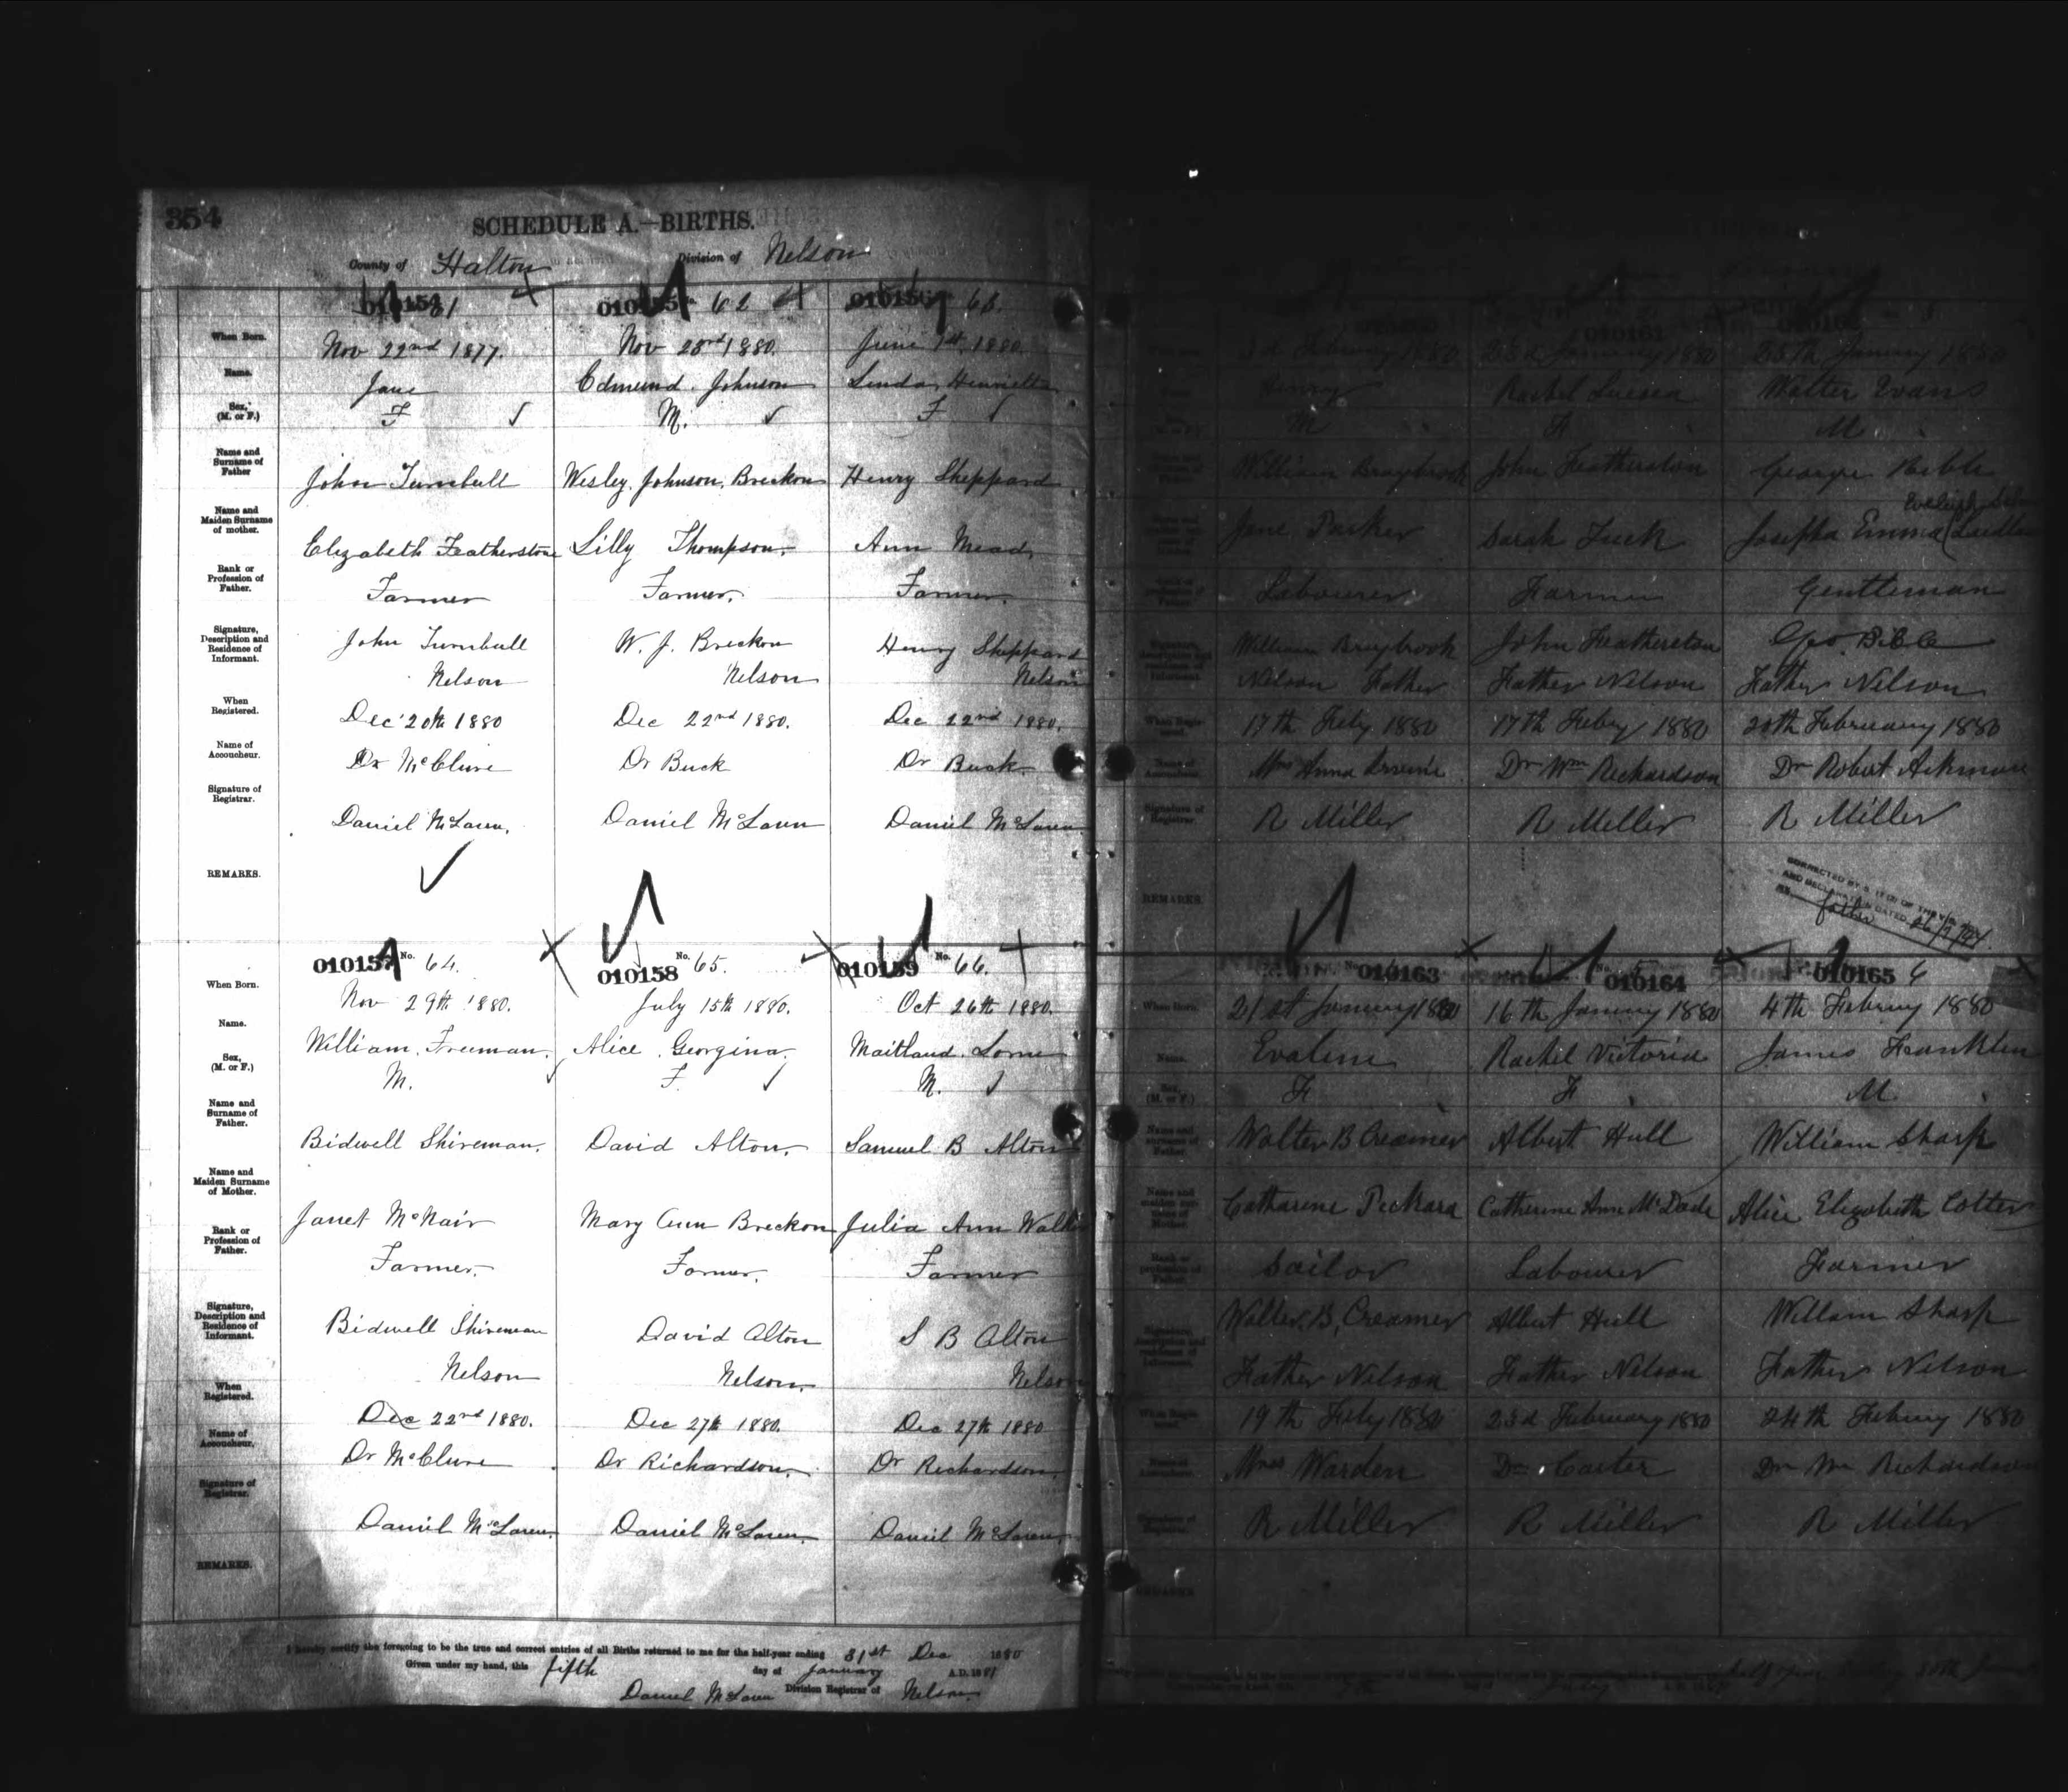 354
SCHEDULE A.—BIRTHS.
County of Halton Division of Nelson
61 62 63.
When Born. Nov 22nd 1877. Nov 23rd 1880. June 1st 1880
Name. Jane Edmund Johnson Linda Henrietta
Sex, (M. or F.) F M. F
Name and Surname of Father John Turnbull Wesley Johnson Breckon Henry Sheppard
Name and Maiden Surname of mother. Elizabeth Featherstone Lilly Thompson Ann Mead
Rank or Profession of Father. Farmer Farmer. Farmer.
Signature, Description and Residence of Informant. John Turnbull W. J. Breckon Henry Sheppard
Nelson Nelson Nelson
When Registered. Dec 20th 1880 Dec 22nd 1880. Dec 22nd 1880.
Name of Accoucheur. Dr McClure Dr Buck Dr Buck.
Signature of Registrar. Daniel McLaren. Daniel McLaren Daniel McLaren
REMARKS.
010157 No. 64. 010158 No. 65. 010159 No. 66.
When Born. Nov 29th 1880. July 15th 1880. Oct 26th 1880.
Name. William Freeman. Alice Georgina. Maitland Lorne
Sex, (M. or F.) M. F. M.
Name and Surname of Father. Bidwell Shireman. David Alton. Samuel B Alton
Name and Maiden Surname of Mother. Janet McNair Mary Ann Breckon Julia Ann
Rank or Profession of Father. Farmer. Farmer. Farmer
Signature, Description and Residence of Informant. Bidwell Shireman David Alton S B Alton
Nelson Nelson. Nelson
When Registered. Dec 22nd 1880. Dec 27th 1880. Dec 27th 1880
Name of Accoucheur. Dr McClure Dr Richardson. Dr Richardson.
Signature of Registrar. Daniel McLaren. Daniel McLaren. Daniel McLaren.
REMARKS.
I hereby certify the foregoing to be the true and correct entries of all Births returned to me for the half-year ending 31st Dec 1880
Given under my hand, this fifth day of January A.D. 1881
Daniel McLaren Division Registrar of Nelson.
010161
1880 23d January 1880 25th January 1880
Henry Rachel Walter Evans
M F M
William Braybrook John Featherston George Bible
Jane Parker Sarah Tuck Josepha Emma
Labourer Farmer Gentleman
William Braybrook John Featherston Geo. Bible
Nelson Father Father Nelson Father Nelson
17th Feby 1880 17th Feby 1880 20th February 1880
Mrs Anna Dr Wm Richardson Dr Robert
Signature of Registrar. R Miller R Miller R Miller
REMARKS.
father 26/9/
010163 010164 010165 6
When Born. 21st January 1880 16th January 1880 4th February 1880
Name. Evaline Rachel Victoria James Franklin
Sex, (M. or F.) F F M
Walter B Creamer Albert Hull William Sharp
Catharine Catherine Ann McDade Alice Elizabeth Cotter
Sailor Labourer Farmer
Walter B. Creamer Albert Hull William Sharp
Father Nelson Father Nelson Father Nelson
19th Feby 1880 23d February 1880 24th February 1880
Mrs Warden Dr Carter Dr Wm Richardson
R Miller R Miller R Miller
REMARKS